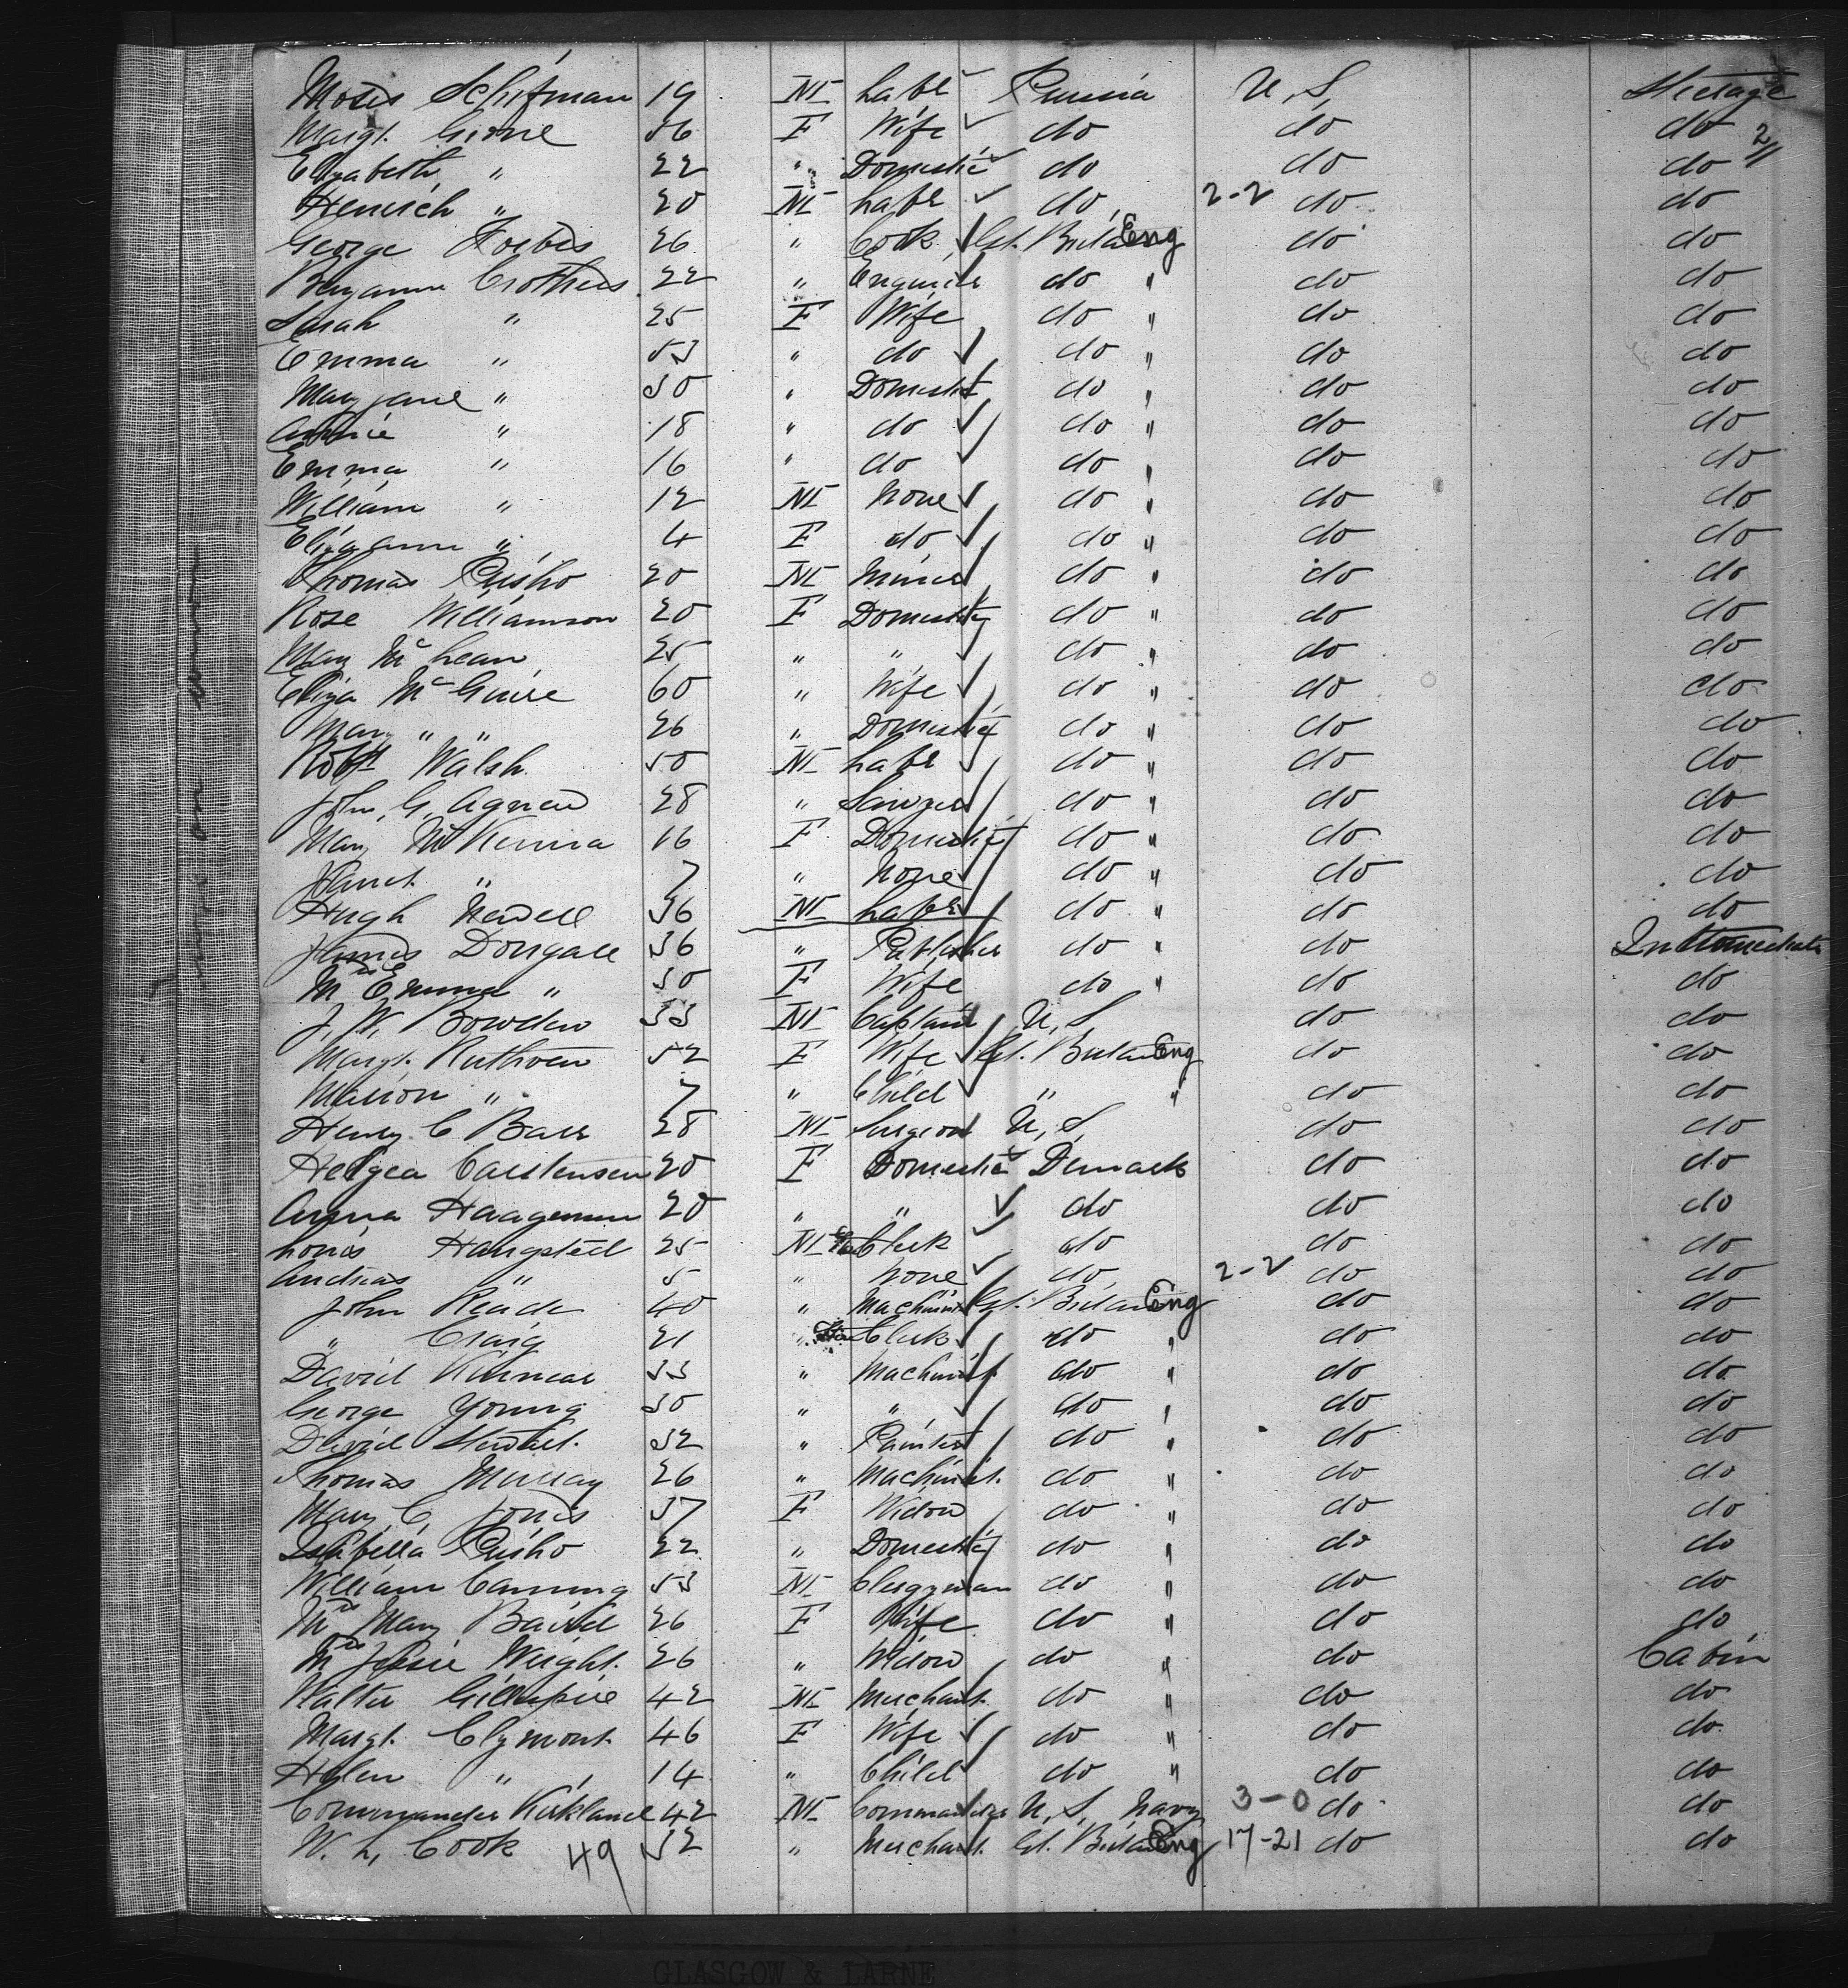 Moses Schifman 19 M labr Russia U, S, Steerage
Margt. 56 F Wife do do do 2/1
Elizabeth " 22 " Domestic do do do
Henrich " 20 M labr do 2-2 do do
George Forbes 26 " Cook Gt. Britain Eng do do
Benjamin Crothers 22 " Engineer do " do do
Sarah " 25 F Wife do " do do
Emma " 53 " do do " do do
Mary Jane " 30 " Domestic do " do do
Annie " 18 " do do " do do
Emma " 16 " do do " do do
William " 12 M None do " do do
Eliza ann " 4 F do do " do do
Thomas Risho 20 M Miner do " do do
Rose Williamson 20 F Domestic do " do do
Mary McLean 25 " " do " do do
Eliza McGuire 60 " Wife do " do do
Mary " " 26 " Domestic do " do do
Robt Walsh 50 M labr do " do do
John G, Agnew 28 " Sawyer do " do do
Mary McKenna 16 F Domestic do " do do
Janet " 7 " None do " do do
Hugh Newell 36 M labr do " do do
James Dougall 36 " Publisher do " do Intermediate
Mrs Emma " 30 F Wife do " do do
J, W, Bowden 33 M Captain U, S do do
Margt. Ruthven 52 F Wife Gt. Britain Eng do do
Marion " 7 " Child " " do do
Henry C Barr 28 M Surgeon U, S, do do
Helgea Carstensen 20 F Domestic Denmark do do
Anna Haagensen 20 " " do do do
Louis Haugsted 25 M Clerk do do do
Andreas " 5 " None do 2-2 do do
John Reade 40 " Machinist Gt. Britain Eng do do
" Craig 21 " Clerk do " do do
David Kinnear 33 " Machinist do " do do
George Young 30 " " do " do do
David Stewart. 32 " Painter do " do do
Thomas Murray 26 " Machinist. do " do do
Mary C, Jones 37 F Widow do " do do
Isabella Risho 22 " Domestic do " do do
William Canning 53 M Clergyman do " do do
Mrs Mary Baird 26 F Wife do " do do
Mrs Jessie Wright. 26 " Widow do " do Cabin
Walter Gillespie 42 M Merchant. do " do do
Margt. Clymont. 46 F Wife do " do do
Helen " 14 " Child do " do do
Commander Kirkland 42 M Commander U, S, Navy 3-0 do do
W. L, Cook 49 32 " Merchant. Gt. Britain Eng 17-21 do do
GLASGOW & LARNE